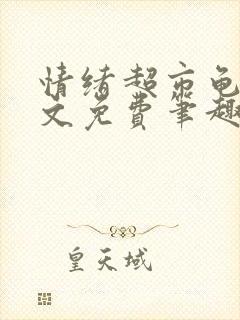 情绪超市龟
文免费笔趣
皇天域